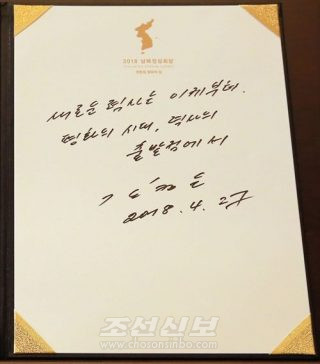 2018 남북정상회담
새로운 력사는 이제부터.
평화의 시대, 력사의
출발점에서
김정은
2018. 4. 27
조선신보
www.chosonsinbo.com